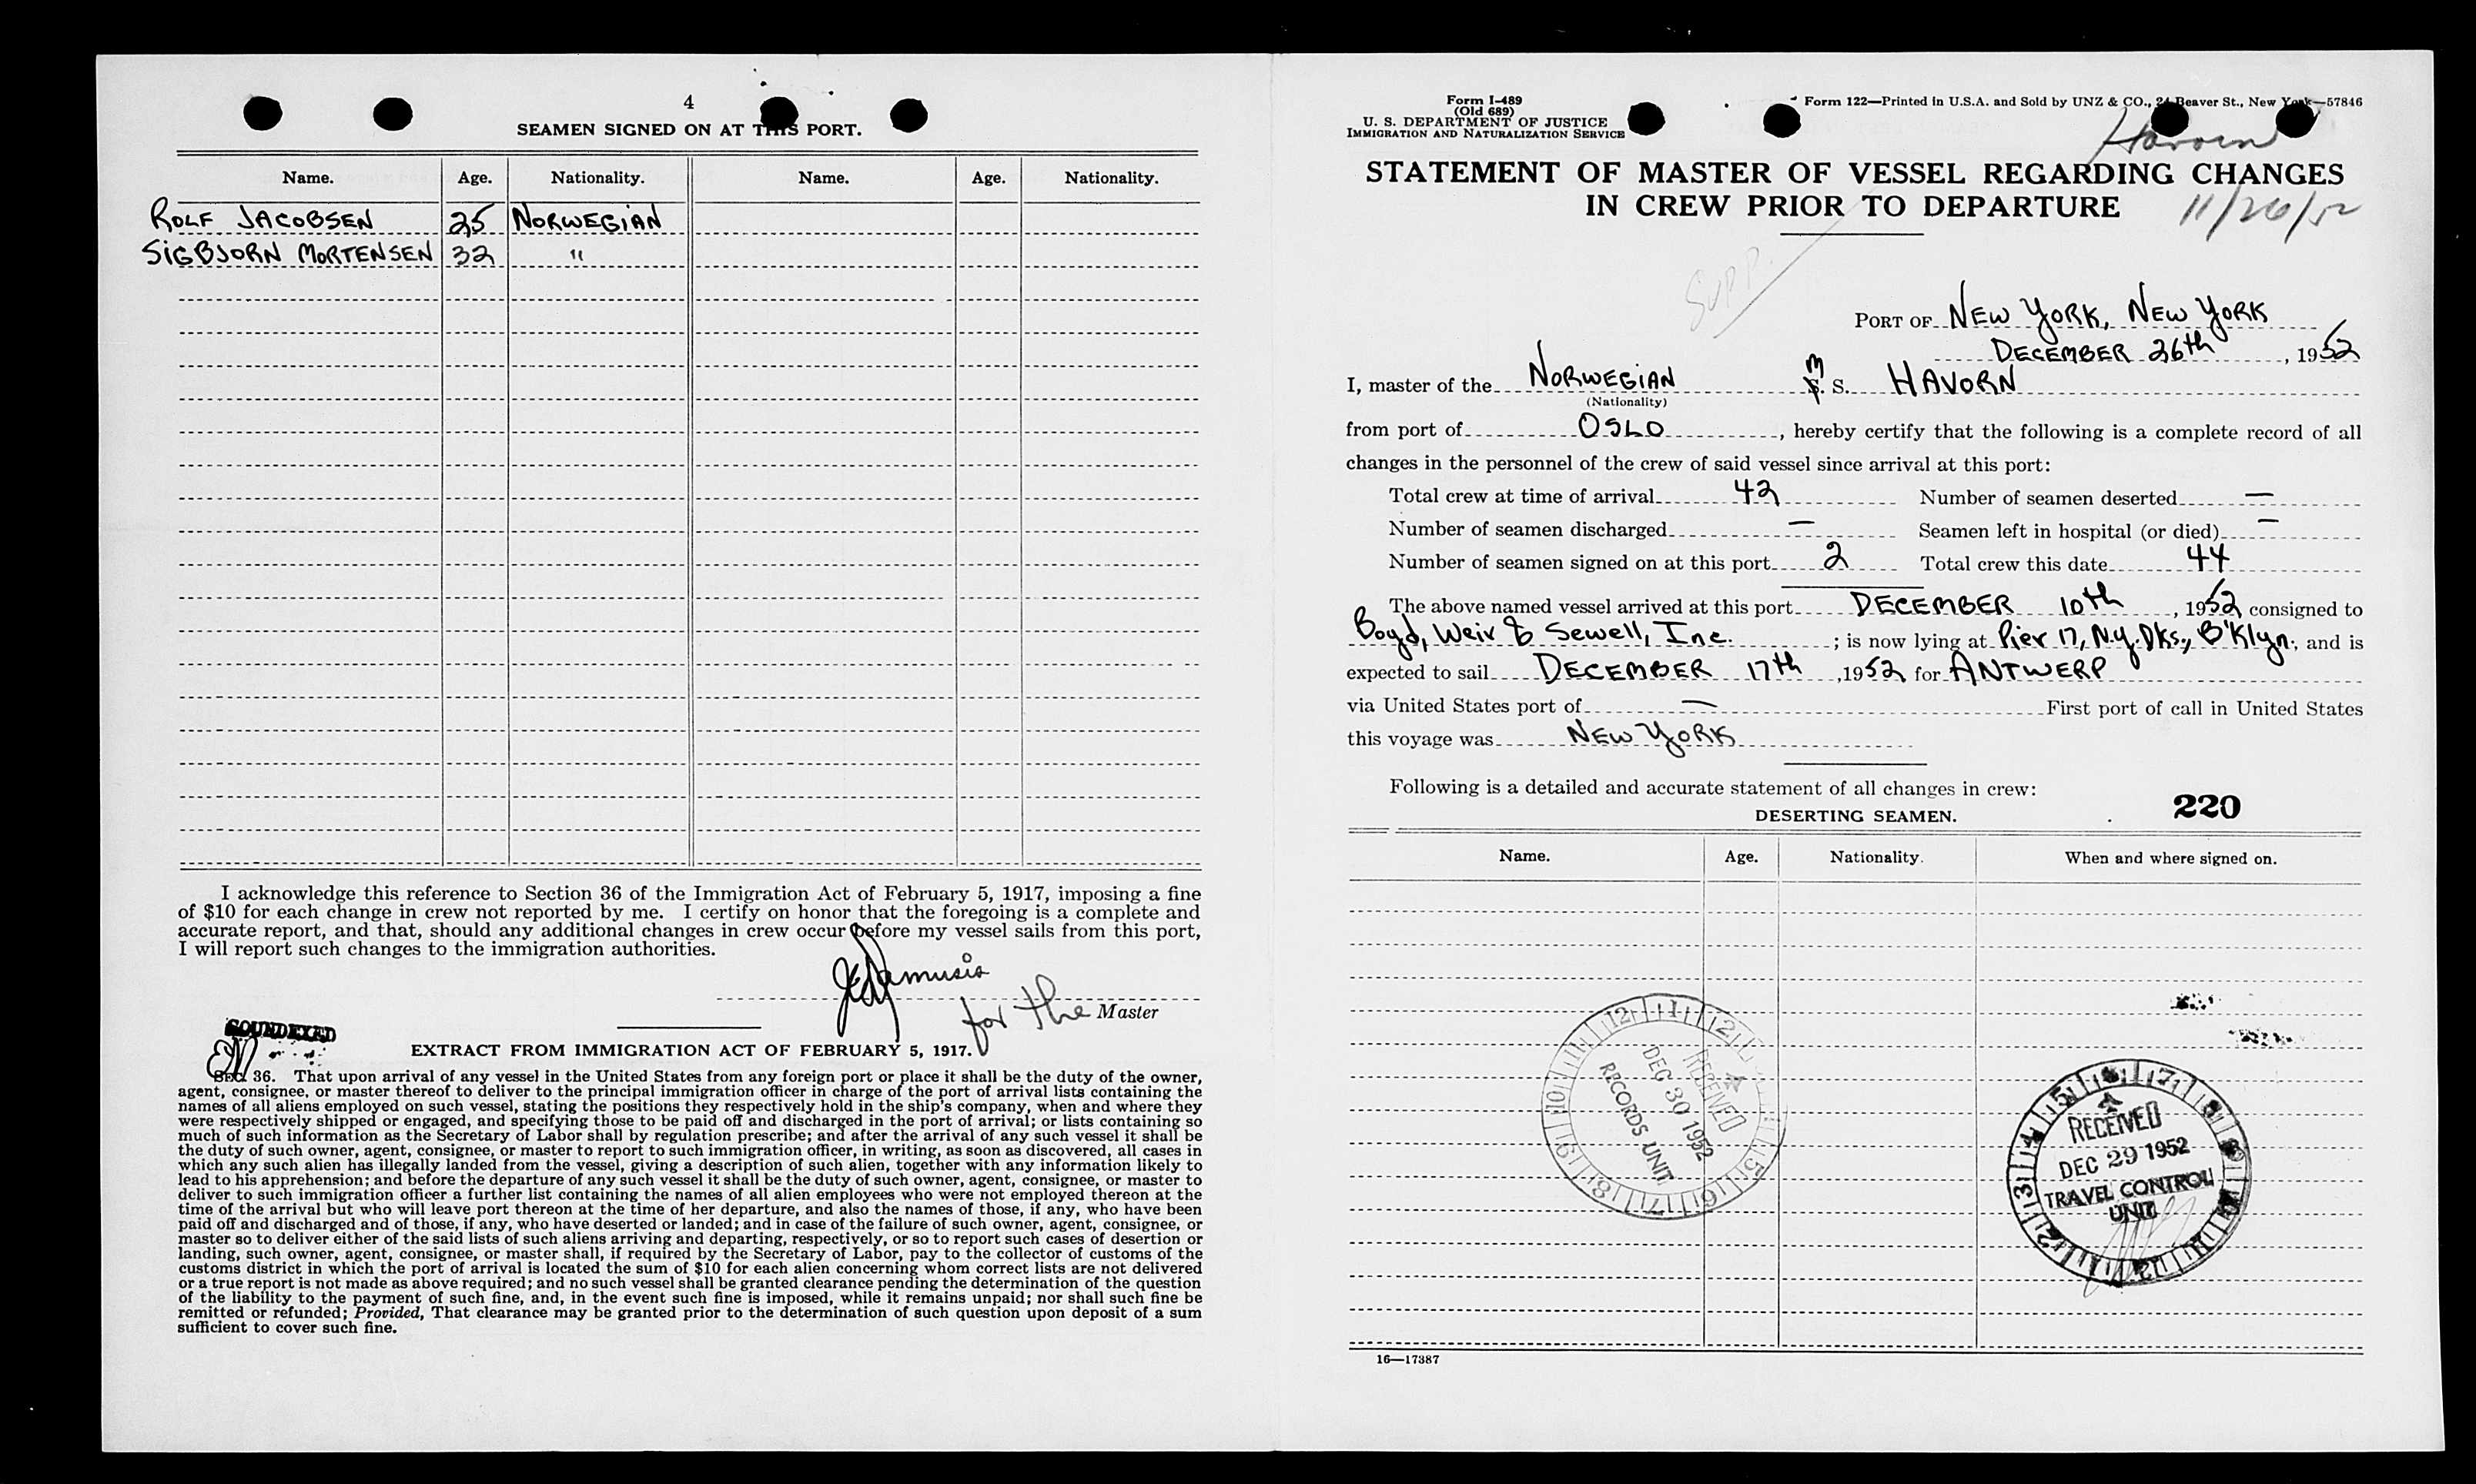 4
SEAMEN SIGNED ON AT THIS PORT.
Name. Age. Nationality. Name. Age. Nationality.
ROLF JACOBSEN 25 NORWEGIAN
SIGBJORN MORTENSEN 32 "
I acknowledge this reference to Section 36 of the Immigration Act of February 5, 1917, imposing a fine
of $10 for each change in crew not reported by me. I certify on honor that the foregoing is a complete and
accurate report, and that, should any additional changes in crew occur before my vessel sails from this port,
I will report such changes to the immigration authorities.
for the Master
SOUNDEXED
EXTRACT FROM IMMIGRATION ACT OF FEBRUARY 5, 1917.
SEC. 36. That upon arrival of any vessel in the United States from any foreign port or place it shall be the duty of the owner,
agent, consignee, or master thereof to deliver to the principal immigration officer in charge of the port of arrival lists containing the
names of all aliens employed on such vessel, stating the positions they respectively hold in the ship's company, when and where they
were respectively shipped or engaged, and specifying those to be paid off and discharged in the port of arrival; or lists containing so
much of such information as the Secretary of Labor shall by regulation prescribe; and after the arrival of any such vessel it shall be
the duty of such owner, agent, consignee, or master to report to such immigration officer, in writing, as soon as discovered, all cases in
which any such alien has illegally landed from the vessel, giving a description of such alien, together with any information likely to
lead to his apprehension; and before the departure of any such vessel it shall be the duty of such owner, agent, consignee, or master to
deliver to such immigration officer a further list containing the names of all alien employees who were not employed thereon at the
time of the arrival but who will leave port thereon at the time of her departure, and also the names of those, if any, who have been
paid off and discharged and of those, if any, who have deserted or landed; and in case of the failure of such owner, agent, consignee, or
master so to deliver either of the said lists of such aliens arriving and departing, respectively, or so to report such cases of desertion or
landing, such owner, agent, consignee, or master shall, if required by the Secretary of Labor, pay to the collector of customs of the
customs district in which the port of arrival is located the sum of $10 for each alien concerning whom correct lists are not delivered
or a true report is not made as above required; and no such vessel shall be granted clearance pending the determination of the question
of the liability to the payment of such fine, and, in the event such fine is imposed, while it remains unpaid; nor shall such fine be
remitted or refunded; Provided, That clearance may be granted prior to the determination of such question upon deposit of a sum
sufficient to cover such fine.
Form I-489
(Old 689)
U. S. DEPARTMENT OF JUSTICE
IMMIGRATION AND NATURALIZATION SERVICE
Form 122—Printed in U.S.A. and Sold by UNZ & CO., 24 Beaver St., New York—57846
Havorn
STATEMENT OF MASTER OF VESSEL REGARDING CHANGES
IN CREW PRIOR TO DEPARTURE
11/26/52
Supp.
PORT OF NEW YORK, NEW YORK
DECEMBER 26th, 1952
I, master of the NORWEGIAN M. S. HAVORN
(Nationality)
from port of OSLO, hereby certify that the following is a complete record of all
changes in the personnel of the crew of said vessel since arrival at this port:
Total crew at time of arrival 42 Number of seamen deserted —
Number of seamen discharged — Seamen left in hospital (or died) —
Number of seamen signed on at this port 2 Total crew this date 44
The above named vessel arrived at this port DECEMBER 10th, 1952 consigned to
Boyd, Weir & Sewell, Inc. ; is now lying at Pier 17, N.Y. Dks., B'Klyn.; and is
expected to sail DECEMBER 17th, 1952 for ANTWERP
via United States port of — First port of call in United States
this voyage was NEW YORK
Following is a detailed and accurate statement of all changes in crew:
220
DESERTING SEAMEN.
Name. Age. Nationality. When and where signed on.
RECEIVED
DEC 30 1952
RECORDS UNIT
RECEIVED
DEC 29 1952
TRAVEL CONTROL
UNIT
16—17387